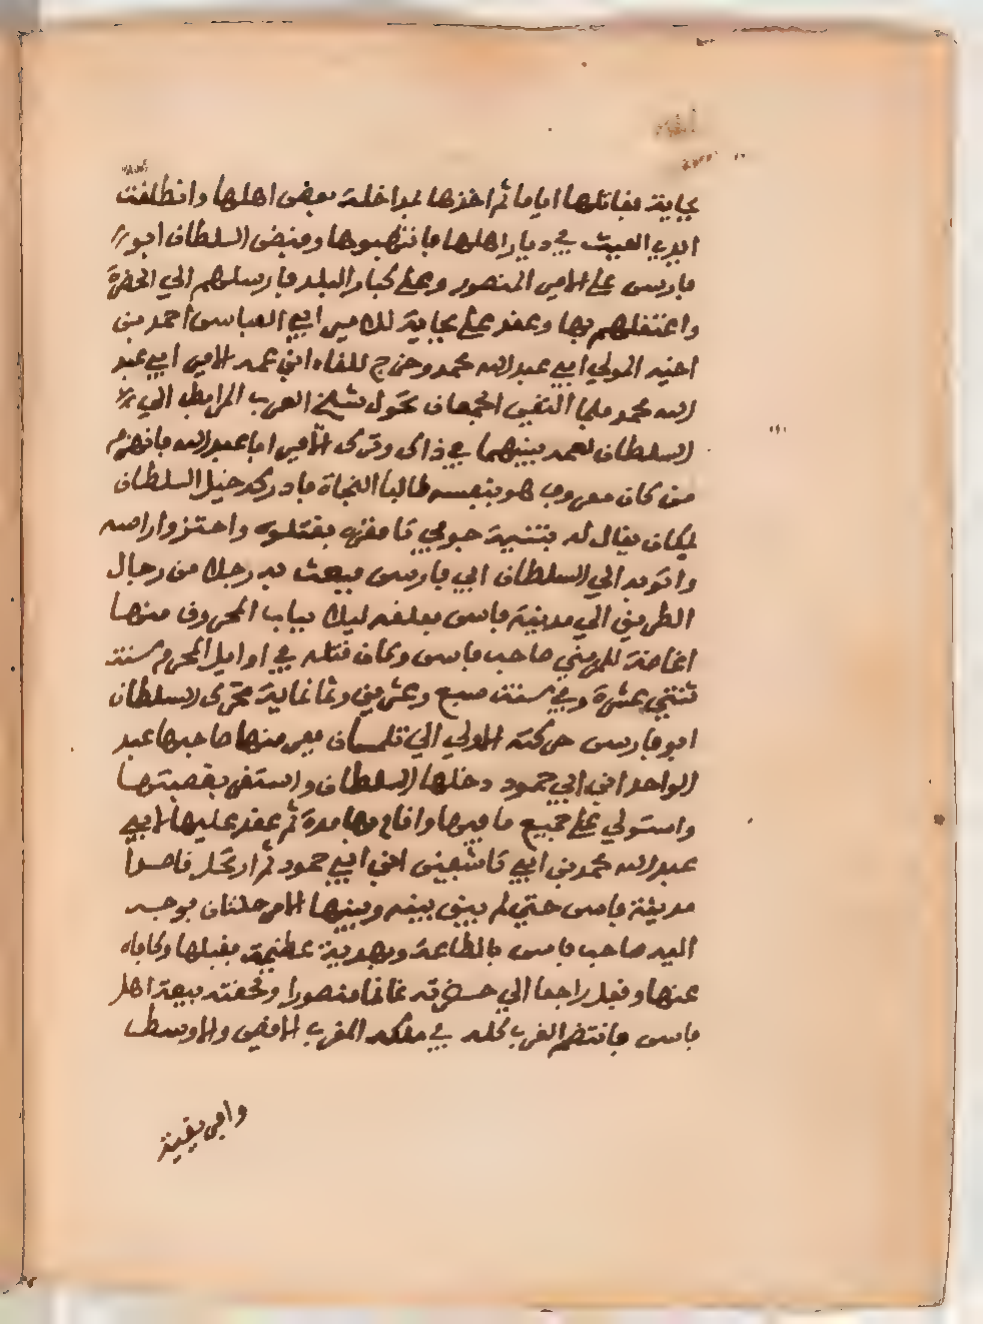 بجاية فقاتلها اياما ثم اخذها لمداخلة بعض اهلها وانطلقت
ايدي العبث في ديار اهلها فانتهبوها وقبض السلطان ابو
فارس على الامير المنصور وعلى كبار البلد فارسلهم الي الحضرة
واعتقلهم بها وعقد على بجاية للامير ابي العباس احمد بن
اخيه المولي ابي عبد الله محمد وخرج للقاء ابن عمه الامير ابي عبد
الله محمد فلما التقي الجمعان تحول شيخ العرب المرابط الي
السلطان لعهد بينهما في ذلك وترك الامير ابا عبد الله فانهزم
من كان معه وفر هو بنفسه طالبا النجاة فادركه خيل السلطان
بمكان يقال له بثنية قفزه فقتلوه واحتزوا راسه
واتو به الي السلطان ابي فارس فبعث به رجلا من رجال
الطريق الي مدينة فاس فعلقه ليلا بباب المحروق منها
اغاضة للمريني صاحب فاس وكان قتله في اوايل المحرم سنة
ثنتي عشرة وفي سنة سبع وعشرين وثمانماية تحرك السلطان
ابو فارس حركته الاولي الي تلمسان ففر منها صاحبها عبد
الواحد ابن ابي حمود دخلها السلطان واستقر بقصبتها
واستولي على جميع ما فيها واقام بها مدة ثم عقد عليها لابي
عبد الله محمد بن ابي تاشفين ابن ابي حمود ثم ارتحل قاصدا
مدينة فاس حتي لم يبق بينه وبينها الا مرحلتان فوجه
اليه صاحب فاس بالطاعة وبهدية عظيمة فقبلها وكافاه
عنها وقفل راجعا الي حضرته غانما منصورا ولحقته بيعة اهل
فاس فانتظم الغرب كله في ملكه المغرب الاقصي والاوسط
وافريقية